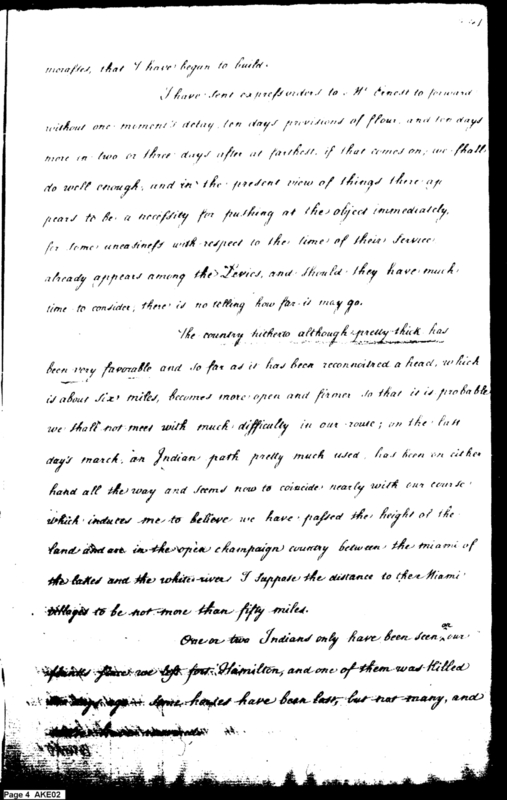 morasses, that I have begun to build.
I have sent express riders to Mr Ernest to forward
without one moment's delay ten days provisions of flour, and ten days
more in two or three days after at farthest, if that comes on, we shall
do well enough, and in the present view of things there ap
pears to be a necessity for pushing at the object immediately,
for some uneasiness with respect to the time of their service
already appears among the Levies, and should they have much
time to consider, there is no telling how far is may go.
The country hitherto although pretty thick has
been very favorable and so far as it has been reconnoitred a head, which
is about six miles, becomes more open and firmer so that it is probable
we shall not meet with much difficulty in our route; on the last
day's march, an Indian path pretty much used, has been on either
hand all the way and seems now to coincide nearly with our course
which induces me to believe we have passed the height of the
land and are in the open champaign country between the miami of
the lakes and the white river I suppose the distance to the Miami
villages to be not more than fifty miles.
One or two Indians only have been seen on our
since we left fort Hamilton, and one of them was killed
some horses have been lost, but not many, and
Page 4 AKE02